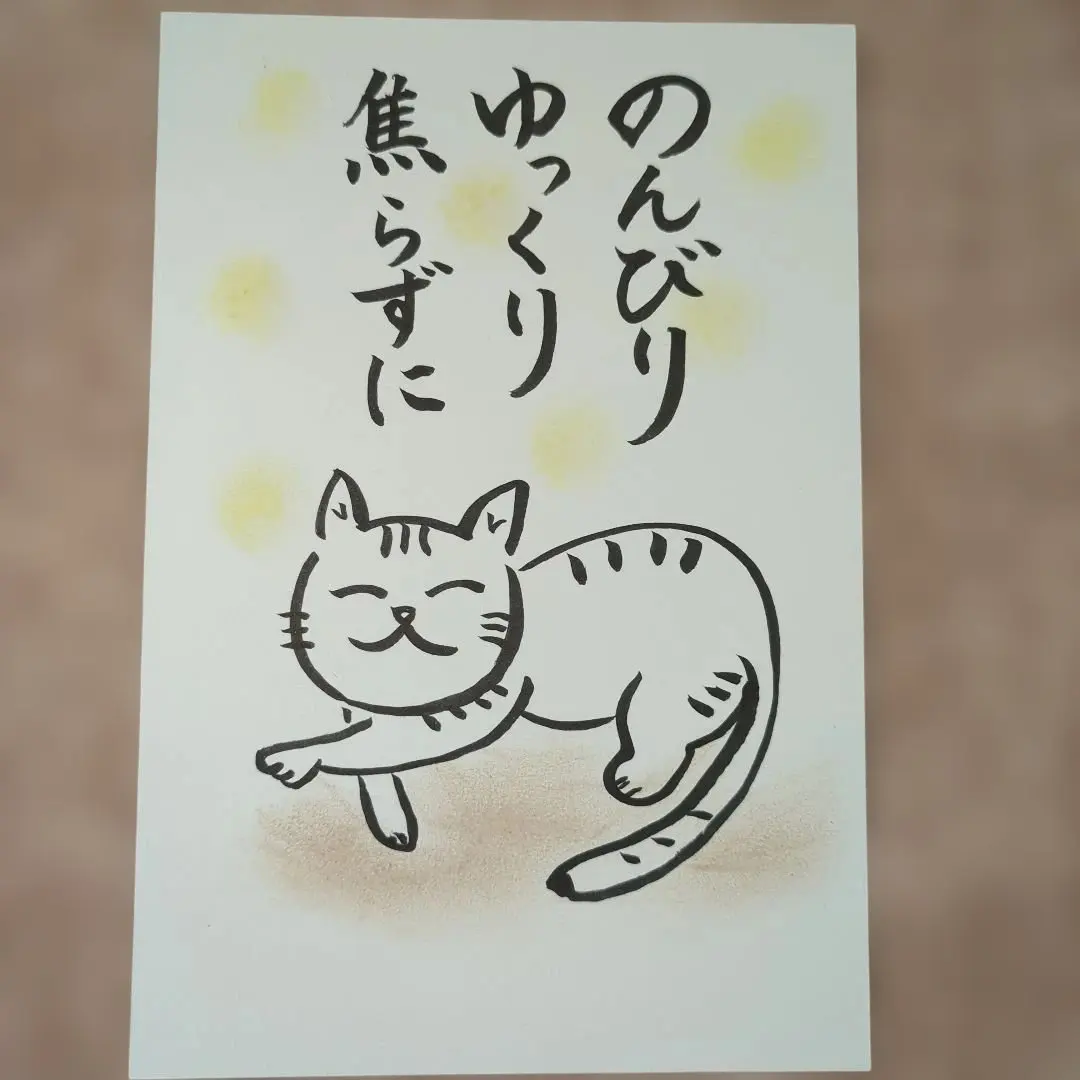 のんびり
ゆっくり
焦らずに